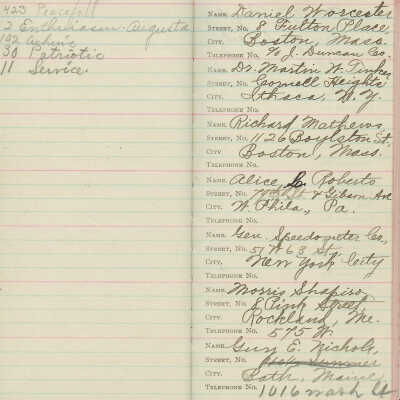 423 Peacefull
2 Enthusiasm - Augusta
102 Aching
30 Patriotic
11 Service.
NAME, Daniel Worcester
STREET, NO. 8 Fulton Place,
CITY, Boston, Mass.
TELEPHONE NO. W. J. Duncan Co.
NAME, Dr. Martin W. Tinker
STREET, NO. Cornell Heights
CITY, Ithaca, N. Y.
TELEPHONE NO.
NAME, Richard Mathews
STREET, NO. 1126 Boylston St.
CITY, Boston, Mass.
TELEPHONE NO.
NAME, Alice L. Roberts
STREET, NO. & Gibson Ave
CITY, W. Phila., Pa.
TELEPHONE NO.
NAME, Gen. Speedometer Co,
STREET, NO. 57 W 63 St
CITY, New York City
TELEPHONE NO.
NAME, Morris Shapiro
STREET, NO. 8 Pink Street
CITY, Rockland, Me.
TELEPHONE NO. 575 W.
NAME, Guy E. Nichols,
STREET, NO. Summer
CITY, Bath, Maine
TELEPHONE NO. 1016 Wash St